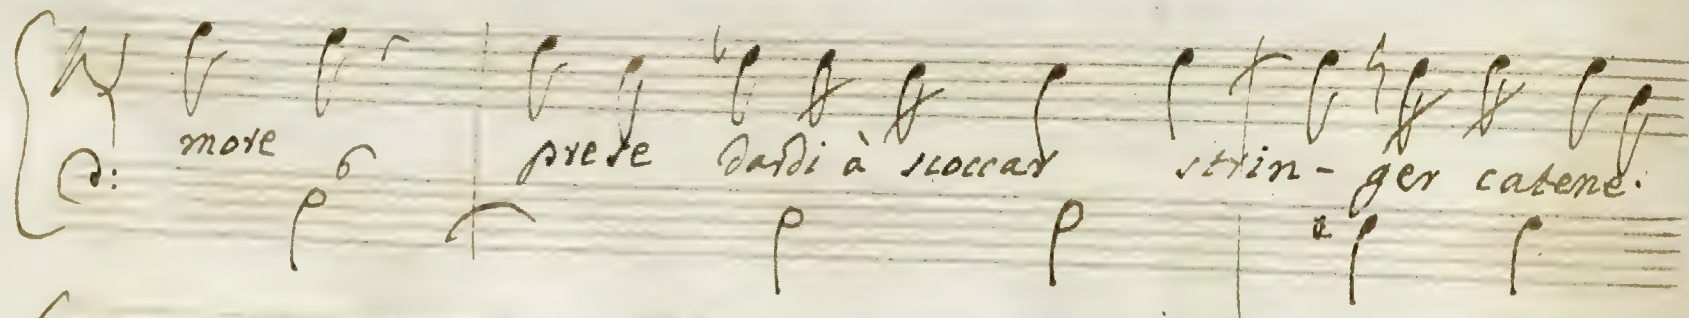 more prese dardi à scoccar strin-ger catene.
6